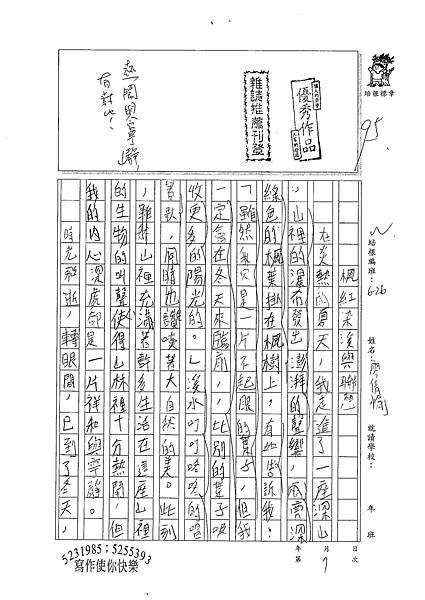 培根標章
95.
優秀作品
雜誌推薦刊登
熱鬧與寧靜
有對比!
培根編班:
6-26
姓名:
就讀學校:
年
班
年
月
日
第
次
楓紅
在炎熱的夏天,我走進了一座深山
,山裡的瀑布發出澎湃的聲響,
綠色的楓葉掛在楓樹上,
「雖然我只是一片不起眼的葉子,但我
一定會在冬天來臨前,比別的葉子吸
收更多的陽光的。」溪水叮叮咚咚的唱
著歌,同時也讚嘆著大自然的美。此刻
,雖然山裡充滿著許多生活在這座山裡
的生物的叫聲使得山林裡十分熱鬧,但
我的內心深處卻是一片祥和與寧靜。
時光飛逝,轉眼間,已到了冬天,
5231985;5255393
寫作使你快樂